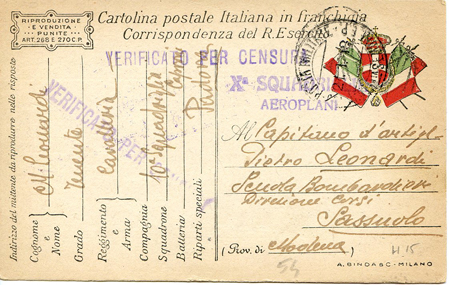 RIPRODUZIONE
E VENDITA
PUNITE
ART. 268 E 270 C.P.
Cartolina postale Italiana in franchigia
Corrispondenza del R. Esercito
VERIFICATO PER CENSURA
Xª SQUADRIGLIA
AEROPLANI
VERIFICATO PER
Indirizzo del mittente da riprodurre nelle risposte
Cognome e Nome
Grado Tenente
Reggimento e Arma Cavalleria
Compagnia
Squadrone 10ª Squadriglia
Batteria
Riparti speciali Padova
Al Capitano d'artigl.
Pietro Leonardi
Scuola Bombardieri
Direzione Corsi
Sassuolo
(Prov. di Modena)
H 15
54
A. BINDA & C - MILANO